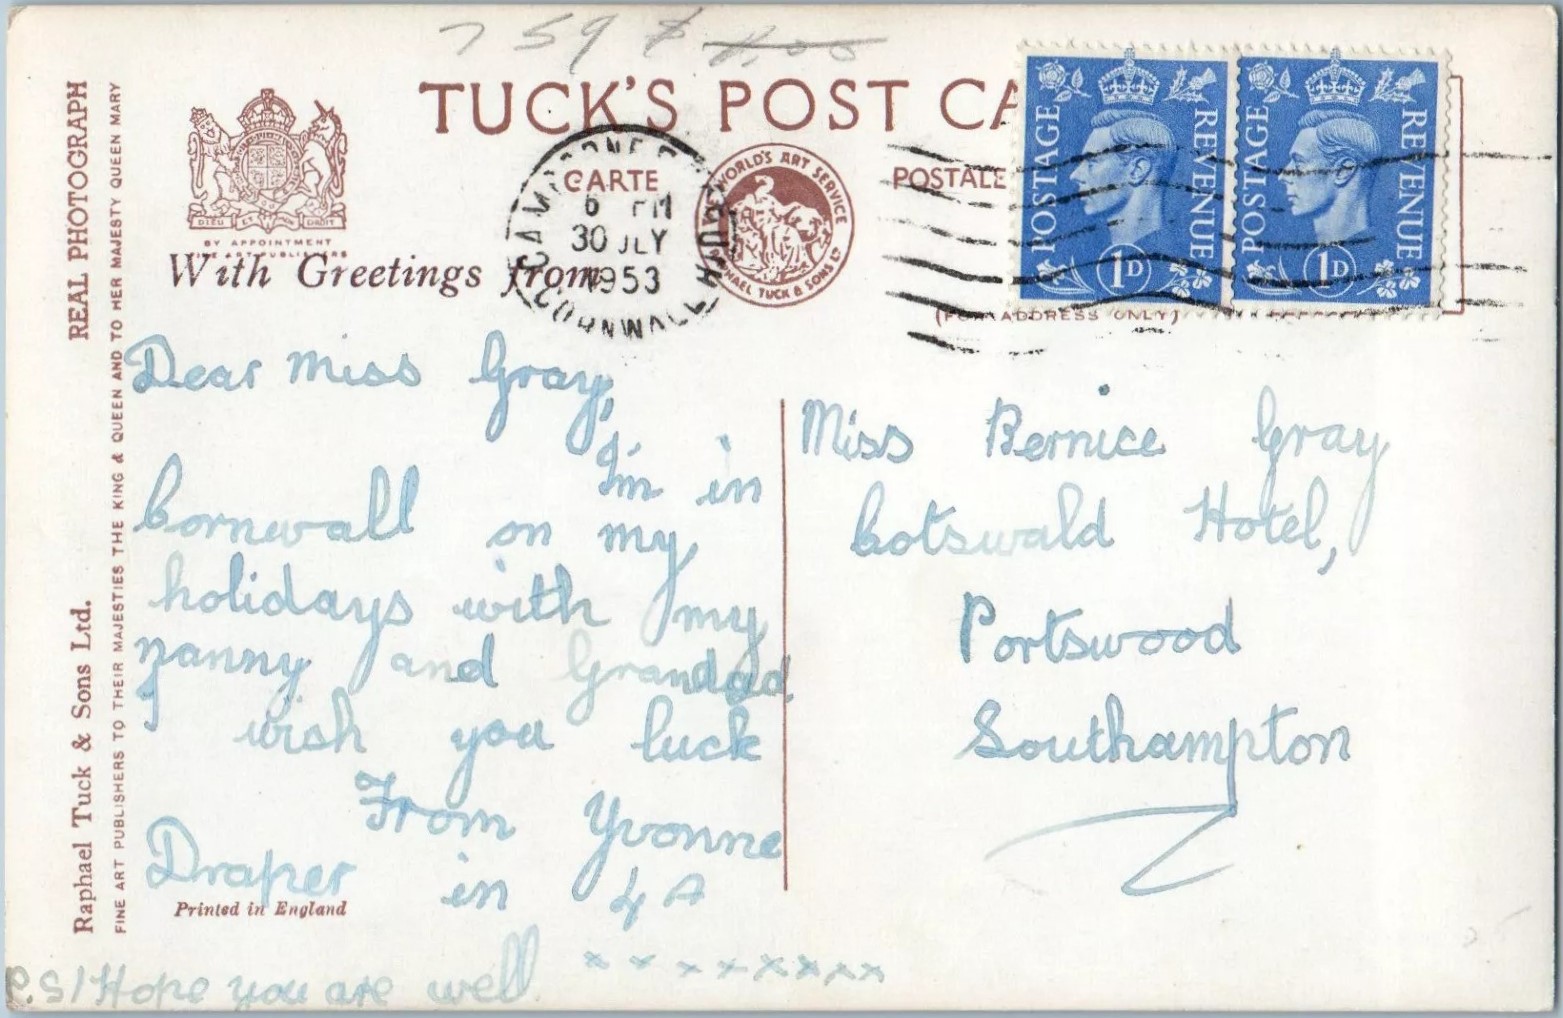 759
TUCK'S POST CA
CARTE
POSTALE
DIEU ET MON DROIT
BY APPOINTMENT
FINE ART PUBLISHERS
With Greetings from
6 PM
30 JLY
1953
CORNWALL
WORLD'S ART SERVICE
RAPHAEL TUCK & SONS LTD
POSTAGE REVENUE
1D
POSTAGE REVENUE
1D
(FOR ADDRESS ONLY)
REAL PHOTOGRAPH
Raphael Tuck & Sons Ltd.
FINE ART PUBLISHERS TO THEIR MAJESTIES THE KING & QUEEN AND TO HER MAJESTY QUEEN MARY
Dear Miss Gray,
I'm in
Cornwall on my
holidays with my
nanny and Grandad
wish you luck
From Yvonne
Draper in 4A
Printed in England
P.S/Hope you are well.
x x x x x x x x x
Miss Bernice Gray
Cotswald Hotel,
Portswood
Southampton